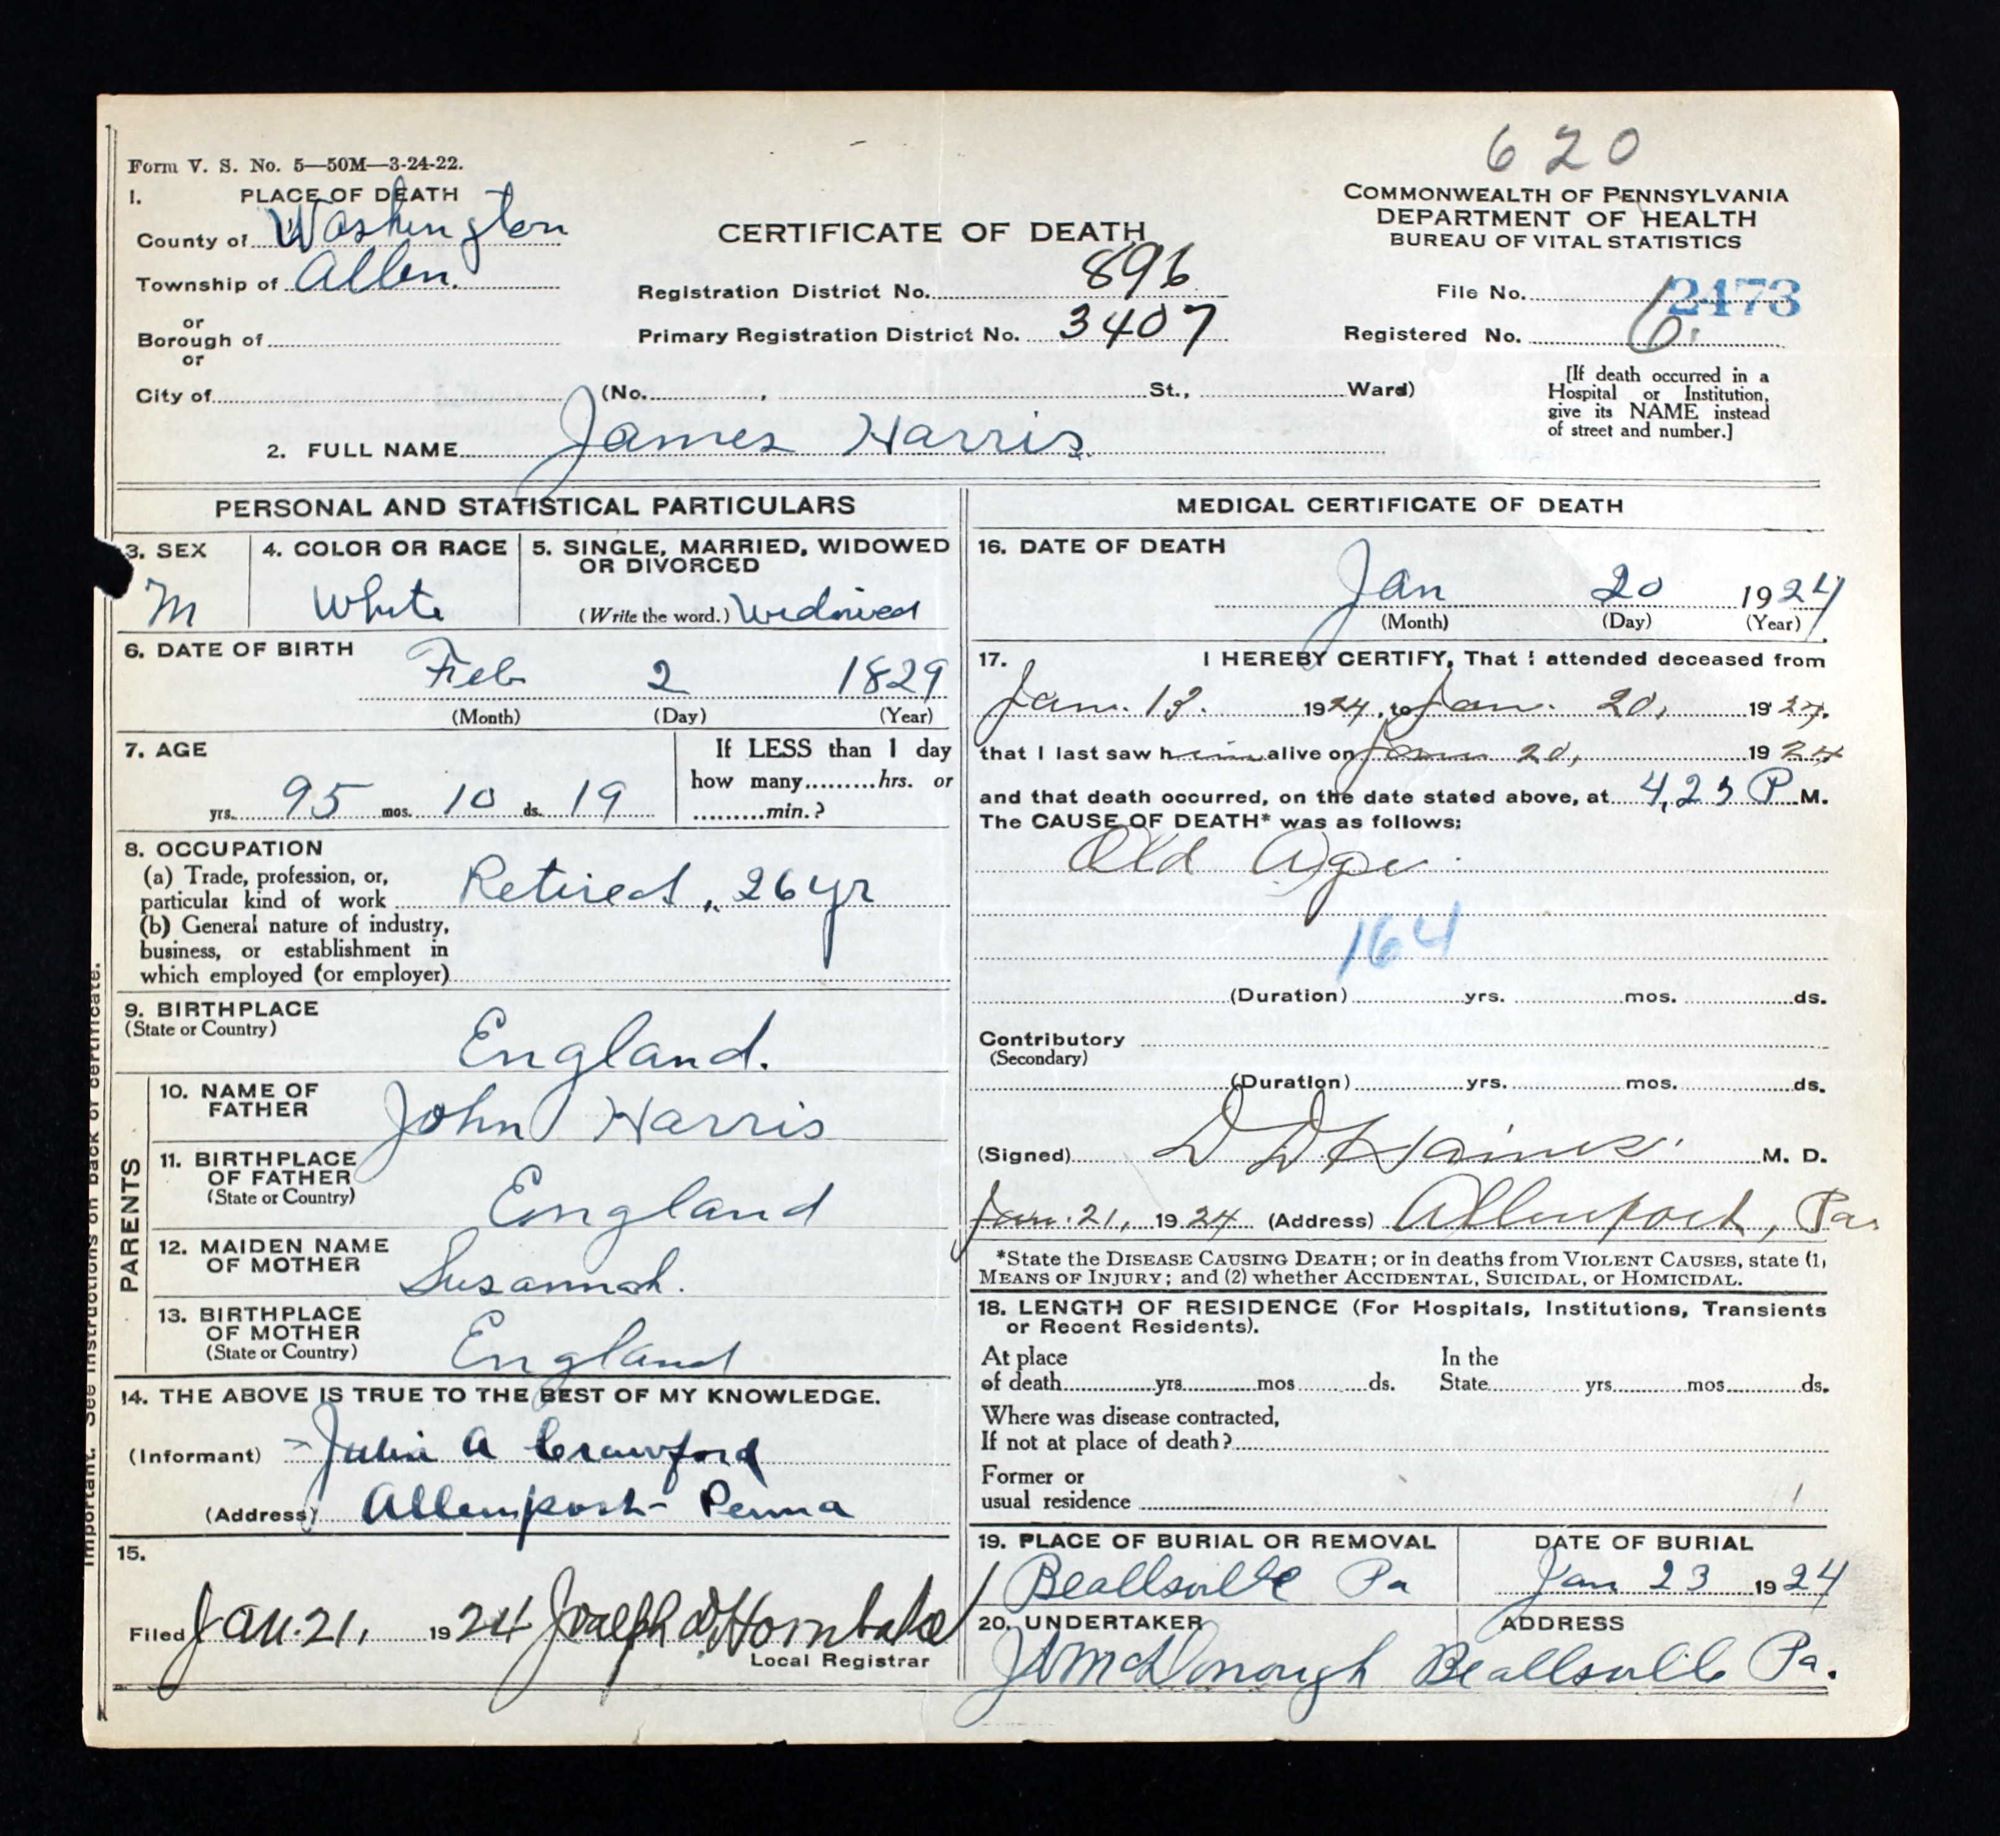 620
Form V. S. No. 5—50M—3-24-22.
1. PLACE OF DEATH
County of Washington
Township of Allen.
or
Borough of
or
City of
CERTIFICATE OF DEATH
Registration District No. 896
Primary Registration District No. 3407
(No. , St., Ward)
COMMONWEALTH OF PENNSYLVANIA
DEPARTMENT OF HEALTH
BUREAU OF VITAL STATISTICS
File No. 2473
Registered No. 6.
[If death occurred in a
Hospital or Institution,
give its NAME instead
of street and number.]
2. FULL NAME James Harris.
PERSONAL AND STATISTICAL PARTICULARS
3. SEX
M
4. COLOR OR RACE
White
5. SINGLE, MARRIED, WIDOWED
OR DIVORCED
(Write the word.) Widowed
6. DATE OF BIRTH
Feb 2 1829
(Month) (Day) (Year)
7. AGE
yrs. 95 mos. 10 ds. 19
If LESS than 1 day
how many hrs. or
min.?
8. OCCUPATION
(a) Trade, profession, or,
particular kind of work Retired, 26 yr
(b) General nature of industry,
business, or establishment in
which employed (or employer)
9. BIRTHPLACE
(State or Country)
England.
PARENTS
10. NAME OF
FATHER
John Harris
11. BIRTHPLACE
OF FATHER
(State or Country)
England
12. MAIDEN NAME
OF MOTHER
Susannah.
13. BIRTHPLACE
OF MOTHER
(State or Country)
England
14. THE ABOVE IS TRUE TO THE BEST OF MY KNOWLEDGE.
(Informant) Julia A Crawford
(Address) Allenport Penna
15.
Filed Jan. 21, 1924 Joseph D. Hornbake
Local Registrar
Important. See instructions on back of certificate.
MEDICAL CERTIFICATE OF DEATH
16. DATE OF DEATH
Jan 20 1924
(Month) (Day) (Year)
17. I HEREBY CERTIFY, That I attended deceased from
Jan. 13. 1924, to Jan. 20, 1924.
that I last saw him alive on Jan 20, 1924
and that death occurred, on the date stated above, at 4,23 P M.
The CAUSE OF DEATH* was as follows:
Old Age.
164
(Duration) yrs. mos. ds.
Contributory
(Secondary)
(Duration) yrs. mos. ds.
(Signed) D D Haines. M. D.
Jan. 21, 1924 (Address) Allenport, Pa.
*State the DISEASE CAUSING DEATH; or in deaths from VIOLENT CAUSES, state (1)
MEANS OF INJURY; and (2) whether ACCIDENTAL, SUICIDAL, or HOMICIDAL.
18. LENGTH OF RESIDENCE (For Hospitals, Institutions, Transients
or Recent Residents).
At place
of death yrs mos ds.
In the
State yrs mos ds.
Where was disease contracted,
If not at place of death?
Former or
usual residence
19. PLACE OF BURIAL OR REMOVAL
Beallsville Pa
DATE OF BURIAL
Jan 23 1924
20. UNDERTAKER
McDonough
ADDRESS
Beallsville Pa.